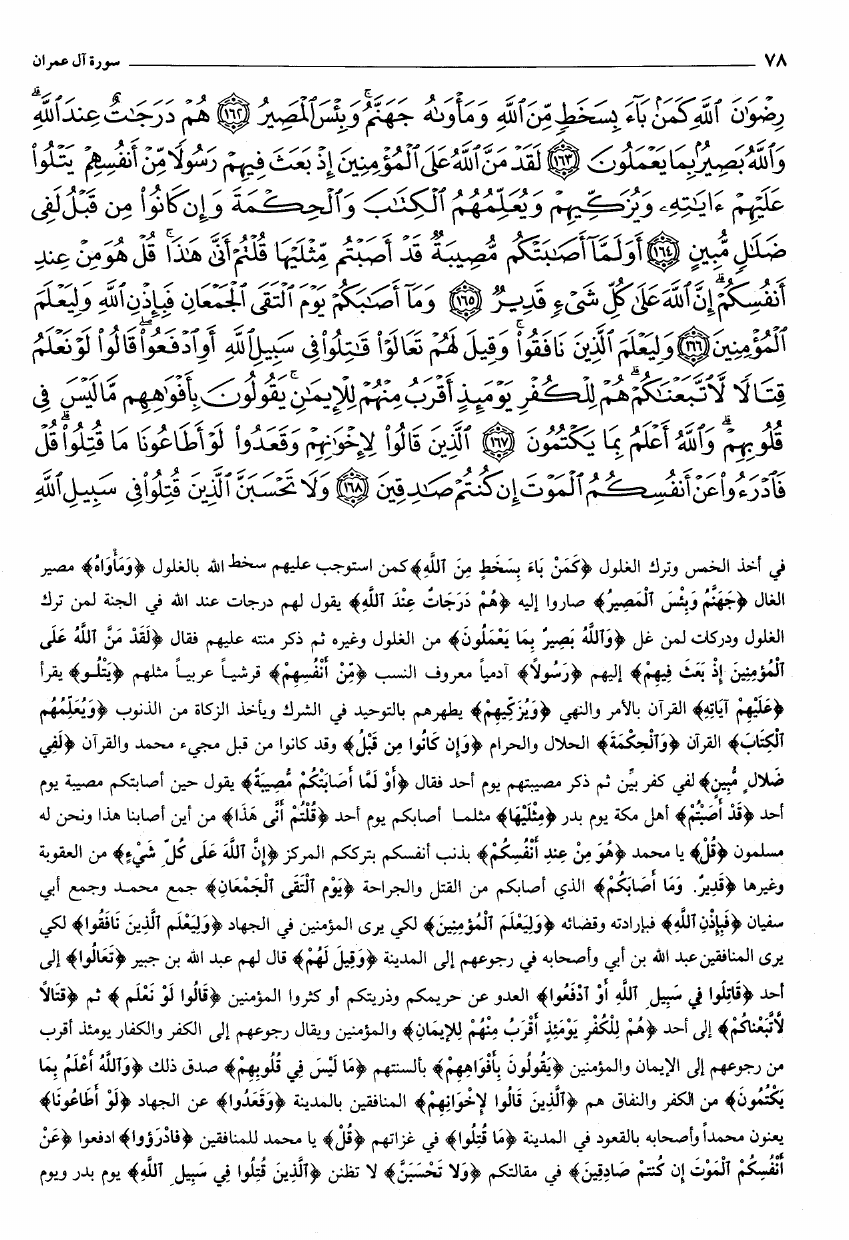 ٧٨ سورة آل عمران
رِضْوَٰنَ ٱللَّهِ كَمَنۢ بَآءَ بِسَخَطٍ مِّنَ ٱللَّهِ وَمَأْوَىٰهُ جَهَنَّمُ ۚ وَبِئْسَ ٱلْمَصِيرُ ﴿١٦٢﴾ هُمْ دَرَجَٰتٌ عِندَ ٱللَّهِ ۗ
وَٱللَّهُ بَصِيرٌۢ بِمَا يَعْمَلُونَ ﴿١٦٣﴾ لَقَدْ مَنَّ ٱللَّهُ عَلَى ٱلْمُؤْمِنِينَ إِذْ بَعَثَ فِيهِمْ رَسُولًا مِّنْ أَنفُسِهِمْ يَتْلُوا۟
عَلَيْهِمْ ءَايَٰتِهِۦ وَيُزَكِّيهِمْ وَيُعَلِّمُهُمُ ٱلْكِتَٰبَ وَٱلْحِكْمَةَ وَإِن كَانُوا۟ مِن قَبْلُ لَفِى
ضَلَٰلٍ مُّبِينٍ ﴿١٦٤﴾ أَوَلَمَّآ أَصَٰبَتْكُم مُّصِيبَةٌ قَدْ أَصَبْتُم مِّثْلَيْهَا قُلْتُمْ أَنَّىٰ هَٰذَا ۖ قُلْ هُوَ مِنْ عِندِ
أَنفُسِكُمْ ۗ إِنَّ ٱللَّهَ عَلَىٰ كُلِّ شَىْءٍ قَدِيرٌ ﴿١٦٥﴾ وَمَآ أَصَٰبَكُمْ يَوْمَ ٱلْتَقَى ٱلْجَمْعَانِ فَبِإِذْنِ ٱللَّهِ وَلِيَعْلَمَ
ٱلْمُؤْمِنِينَ ﴿١٦٦﴾ وَلِيَعْلَمَ ٱلَّذِينَ نَافَقُوا۟ ۚ وَقِيلَ لَهُمْ تَعَالَوْا۟ قَٰتِلُوا۟ فِى سَبِيلِ ٱللَّهِ أَوِ ٱدْفَعُوا۟ ۖ قَالُوا۟ لَوْ نَعْلَمُ
قِتَالًا لَّٱتَّبَعْنَٰكُمْ ۗ هُمْ لِلْكُفْرِ يَوْمَئِذٍ أَقْرَبُ مِنْهُمْ لِلْإِيمَٰنِ ۚ يَقُولُونَ بِأَفْوَٰهِهِم مَّا لَيْسَ فِى
قُلُوبِهِمْ ۗ وَٱللَّهُ أَعْلَمُ بِمَا يَكْتُمُونَ ﴿١٦٧﴾ ٱلَّذِينَ قَالُوا۟ لِإِخْوَٰنِهِمْ وَقَعَدُوا۟ لَوْ أَطَاعُونَا مَا قُتِلُوا۟ ۗ قُلْ
فَٱدْرَءُوا۟ عَنْ أَنفُسِكُمُ ٱلْمَوْتَ إِن كُنتُمْ صَٰدِقِينَ ﴿١٦٨﴾ وَلَا تَحْسَبَنَّ ٱلَّذِينَ قُتِلُوا۟ فِى سَبِيلِ ٱللَّهِ
في أخذ الخمس وترك الغلول ﴿كَمَنْ بَاءَ بِسَخَطٍ مِنَ ٱللَّهِ﴾ كمن استوجب عليهم سخط الله بالغلول ﴿وَمَأْوَاهُ﴾ مصير
الغال ﴿جَهَنَّمُ وَبِئْسَ ٱلْمَصِيرُ﴾ صاروا إليه ﴿هُمْ دَرَجَاتٌ عِنْدَ ٱللَّهِ﴾ يقول لهم درجات عند الله في الجنة لمن ترك
الغلول ودركات لمن غل ﴿وَٱللَّهُ بَصِيرٌ بِمَا يَعْمَلُونَ﴾ من الغلول وغيره ثم ذكر منته عليهم فقال ﴿لَقَدْ مَنَّ ٱللَّهُ عَلَى
ٱلْمُؤْمِنِينَ إِذْ بَعَثَ فِيهِمْ﴾ إليهم ﴿رَسُولاً﴾ آدمياً معروف النسب ﴿مِّنْ أَنْفُسِهِمْ﴾ قرشياً عربياً مثلهم ﴿يَتْلُو﴾ يقرأ
﴿عَلَيْهِمْ آيَاتِهِ﴾ القرآن بالأمر والنهي ﴿وَيُزَكِّيهِمْ﴾ يطهرهم بالتوحيد في الشرك ويأخذ الزكاة من الذنوب ﴿وَيُعَلِّمُهُم
ٱلْكِتَابَ﴾ القرآن ﴿وَٱلْحِكْمَةَ﴾ الحلال والحرام ﴿وَإِن كَانُوا مِن قَبْلُ﴾ وقد كانوا من قبل مجيء محمد والقرآن ﴿لَفِي
ضَلالٍ مُّبِينٍ﴾ لفي كفر بيِّن ثم ذكر مصيبتهم يوم أحد فقال ﴿أَوْ لَمَّا أَصَابَتْكُمْ مُّصِيبَةٌ﴾ يقول حين أصابتكم مصيبة يوم
أحد ﴿قَدْ أَصَبْتُمْ﴾ أهل مكة يوم بدر ﴿مِثْلَيْهَا﴾ مثلما أصابكم يوم أحد ﴿قُلْتُمْ أَنَّى هَذَا﴾ من أين أصابنا هذا ونحن له
مسلمون ﴿قُلْ﴾ يا محمد ﴿هُوَ مِنْ عِندِ أَنْفُسِكُمْ﴾ بذنب أنفسكم بترككم المركز ﴿إِنَّ ٱللَّهَ عَلَى كُلِّ شَيْءٍ﴾ من العقوبة
وغيرها ﴿قَدِيرٌ. وَمَا أَصَابَكُمْ﴾ الذي أصابكم من القتل والجراحة ﴿يَوْمَ ٱلْتَقَى ٱلْجَمْعَانِ﴾ جمع محمد وجمع أبي
سفيان ﴿فَبِإِذْنِ ٱللَّهِ﴾ فبإرادته وقضائه ﴿وَلِيَعْلَمَ ٱلْمُؤْمِنِينَ﴾ لكي يرى المؤمنين في الجهاد ﴿وَلِيَعْلَمَ ٱلَّذِينَ نَافَقُوا﴾ لكي
يرى المنافقين عبد الله بن أبي وأصحابه في رجوعهم إلى المدينة ﴿وَقِيلَ لَهُمْ﴾ قال لهم عبد الله بن جبير ﴿تَعَالُوا﴾ إلى
أحد ﴿قَاتِلُوا فِي سَبِيلِ ٱللَّهِ أَوْ ٱدْفَعُوا﴾ العدو عن حريمكم وذريتكم أو كثروا المؤمنين ﴿قَالُوا لَوْ نَعْلَم﴾ ثم ﴿قِتَالاً
لاَّتَّبَعْنَاكُمْ﴾ إلى أحد ﴿هُمْ لِلْكُفْرِ يَوْمَئِذٍ أَقْرَبُ مِنْهُمْ لِلإِيمَانِ﴾ والمؤمنين ويقال رجوعهم إلى الكفر والكفار يومئذ أقرب
من رجوعهم إلى الإيمان والمؤمنين ﴿يَقُولُونَ بِأَفْوَاهِهِمْ﴾ بألسنتهم ﴿مَا لَيْسَ فِي قُلُوبِهِمْ﴾ صدق ذلك ﴿وَٱللَّهُ أَعْلَمُ بِمَا
يَكْتُمُونَ﴾ من الكفر والنفاق هم ﴿ٱلَّذِينَ قَالُوا لإِخْوَانِهِمْ﴾ المنافقين بالمدينة ﴿وَقَعَدُوا﴾ عن الجهاد ﴿لَوْ أَطَاعُونَا﴾
يعنون محمداً وأصحابه بالقعود في المدينة ﴿مَا قُتِلُوا﴾ في غزاتهم ﴿قُلْ﴾ يا محمد للمنافقين ﴿فَادْرَؤوا﴾ ادفعوا ﴿عَنْ
أَنْفُسِكُمْ ٱلْمَوْتَ إِن كُنتمْ صَادِقِينَ﴾ في مقالتكم ﴿وَلا تَحْسَبَنَّ﴾ لا تظنن ﴿ٱلَّذِينَ قُتِلُوا فِي سَبِيلِ ٱللَّهِ﴾ يوم بدر ويوم